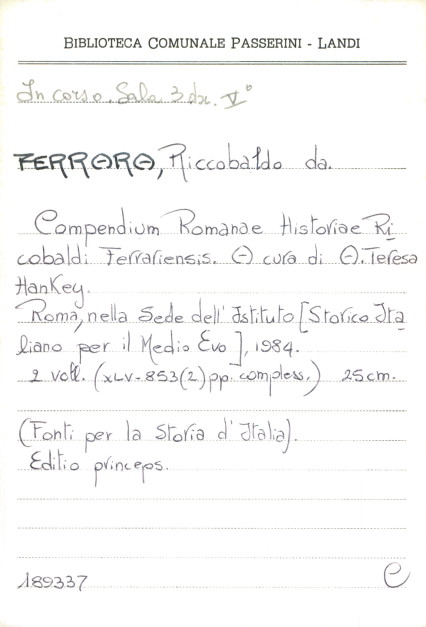 BIBLIOTECA COMUNALE PASSERINI - LANDI
In corso. Sala 3 dx. V°
FERRARA, Riccobaldo da.
Compendium Romanae Historiae Ri
cobaldi Ferrariensis. A cura di A. Teresa
Hankey.
Roma, nella Sede dell' Istituto [Storico Ita
liano per il Medio Evo], 1984.
2 voll. (XLV-853(2) pp. compless.) 25 cm.
(Fonti per la Storia d' Italia).
Editio princeps.
189337 e